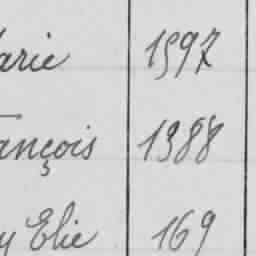 arie 1597
ançois 1388
y Elie 169